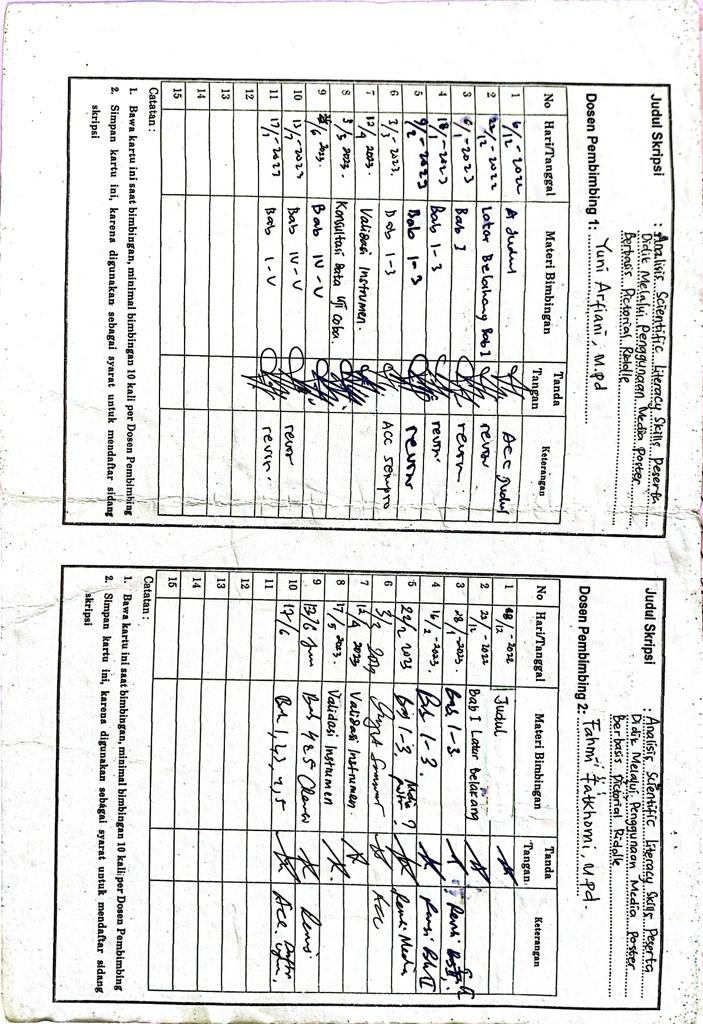 Judul Skripsi : Analisis Scientific Literacy Skills Peserta
Didik Melalui Penggunaan Media Poster
Berbasis Pictorial Riddle
Dosen Pembimbing 1: Yuni Arfiani, M.Pd
No Hari/Tanggal Materi Bimbingan Tanda Tangan Keterangan
1 6/12 - 2022 Judul Acc Judul
2 22/12 - 2022 Latar Belakang Bab I revisi
3 6/1 - 2023 Bab I revisi
4 18/1 - 2023 Bab 1 - 3 revisi
5 9/2 - 2023 Bab 1 - 3 revisi
6 3/3 - 2023. Bab 1 - 3 ACC Sempro
7 12/4 2023. Validasi Instrumen.
8 3/5 2023. Konsultasi Data Uji Coba.
9 /6 2023. Bab IV - V
10 13/7 - 2023 Bab IV - V revisi
11 17/7 - 2023 Bab I - V revisi
12
13
14
15
Catatan :
1. Bawa kartu ini saat bimbingan, minimal bimbingan 10 kali per Dosen Pembimbing
2. Simpan kartu ini, karena digunakan sebagai syarat untuk mendaftar sidang
skripsi
Judul Skripsi : Analisis Scientific Literacy Skills Peserta
Didik Melalui Penggunaan Media Poster
Berbasis Pictorial Riddle
Dosen Pembimbing 2: Fahmi Fatkhomi, M.Pd.
No Hari/Tanggal Materi Bimbingan Tanda Tangan Keterangan
1 /12 - 2022 Judul
2 22/12 - 2022 Bab I Latar belakang
3 28/1 - 2023. Bab 1 - 3
4 16/2 - 2023. Bab 1 - 3.
5 22/2 2023 Bab 1 - 3, Media Revisi Media
6 3/3 Acc
7 12/4 2023 Validasi Instrumen.
8 17/5 2023. Validasi Instrumen
9 13/6 Bab 4 & 5 Revisi
10 17/6 Bab 1, 2, 3, 4, 5 Acc
11
12
13
14
15
Catatan :
1. Bawa kartu ini saat bimbingan, minimal bimbingan 10 kali per Dosen Pembimbing
2. Simpan kartu ini, karena digunakan sebagai syarat untuk mendaftar sidang
skripsi